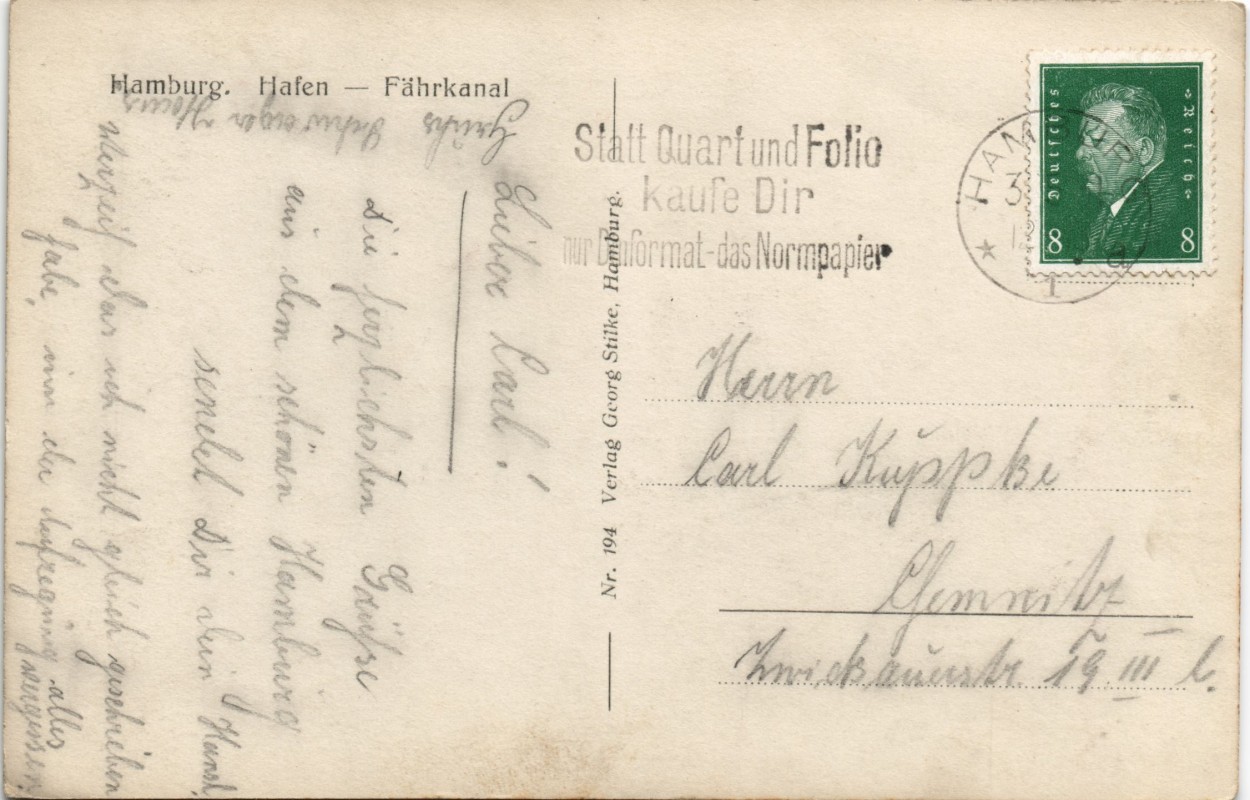 Hamburg. Hafen — Fährkanal
Lieber Carl!
Die herzlichsten Grüße
aus dem schönen Hamburg
sendet Dir dein Hansl.
das ich nicht gleich geschrieben
habe, in der alles
vergessen.
Nr. 194 Verlag Georg Stilke, Hamburg.
Statt Quart und Folio
kaufe Dir
nur Dinformat-das Normpapier
HAMBURG
1
a
Deutsches Reich
8 8
Herrn
Carl Kuppke
Chemnitz
Zwickauerstr 19 III l.